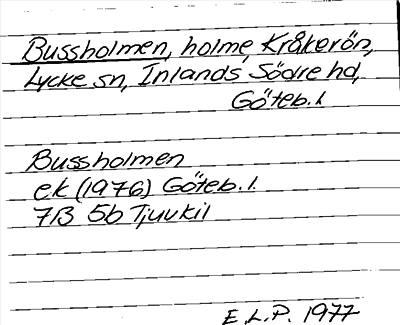 Bussholmen, holme, Kråkerön,
Lycke sn, Inlands Södre hd,
Göteb. l
Bussholmen
ek (1976) Göteb. l.
7B 5b Tjuvkil
E.L.P. 1977